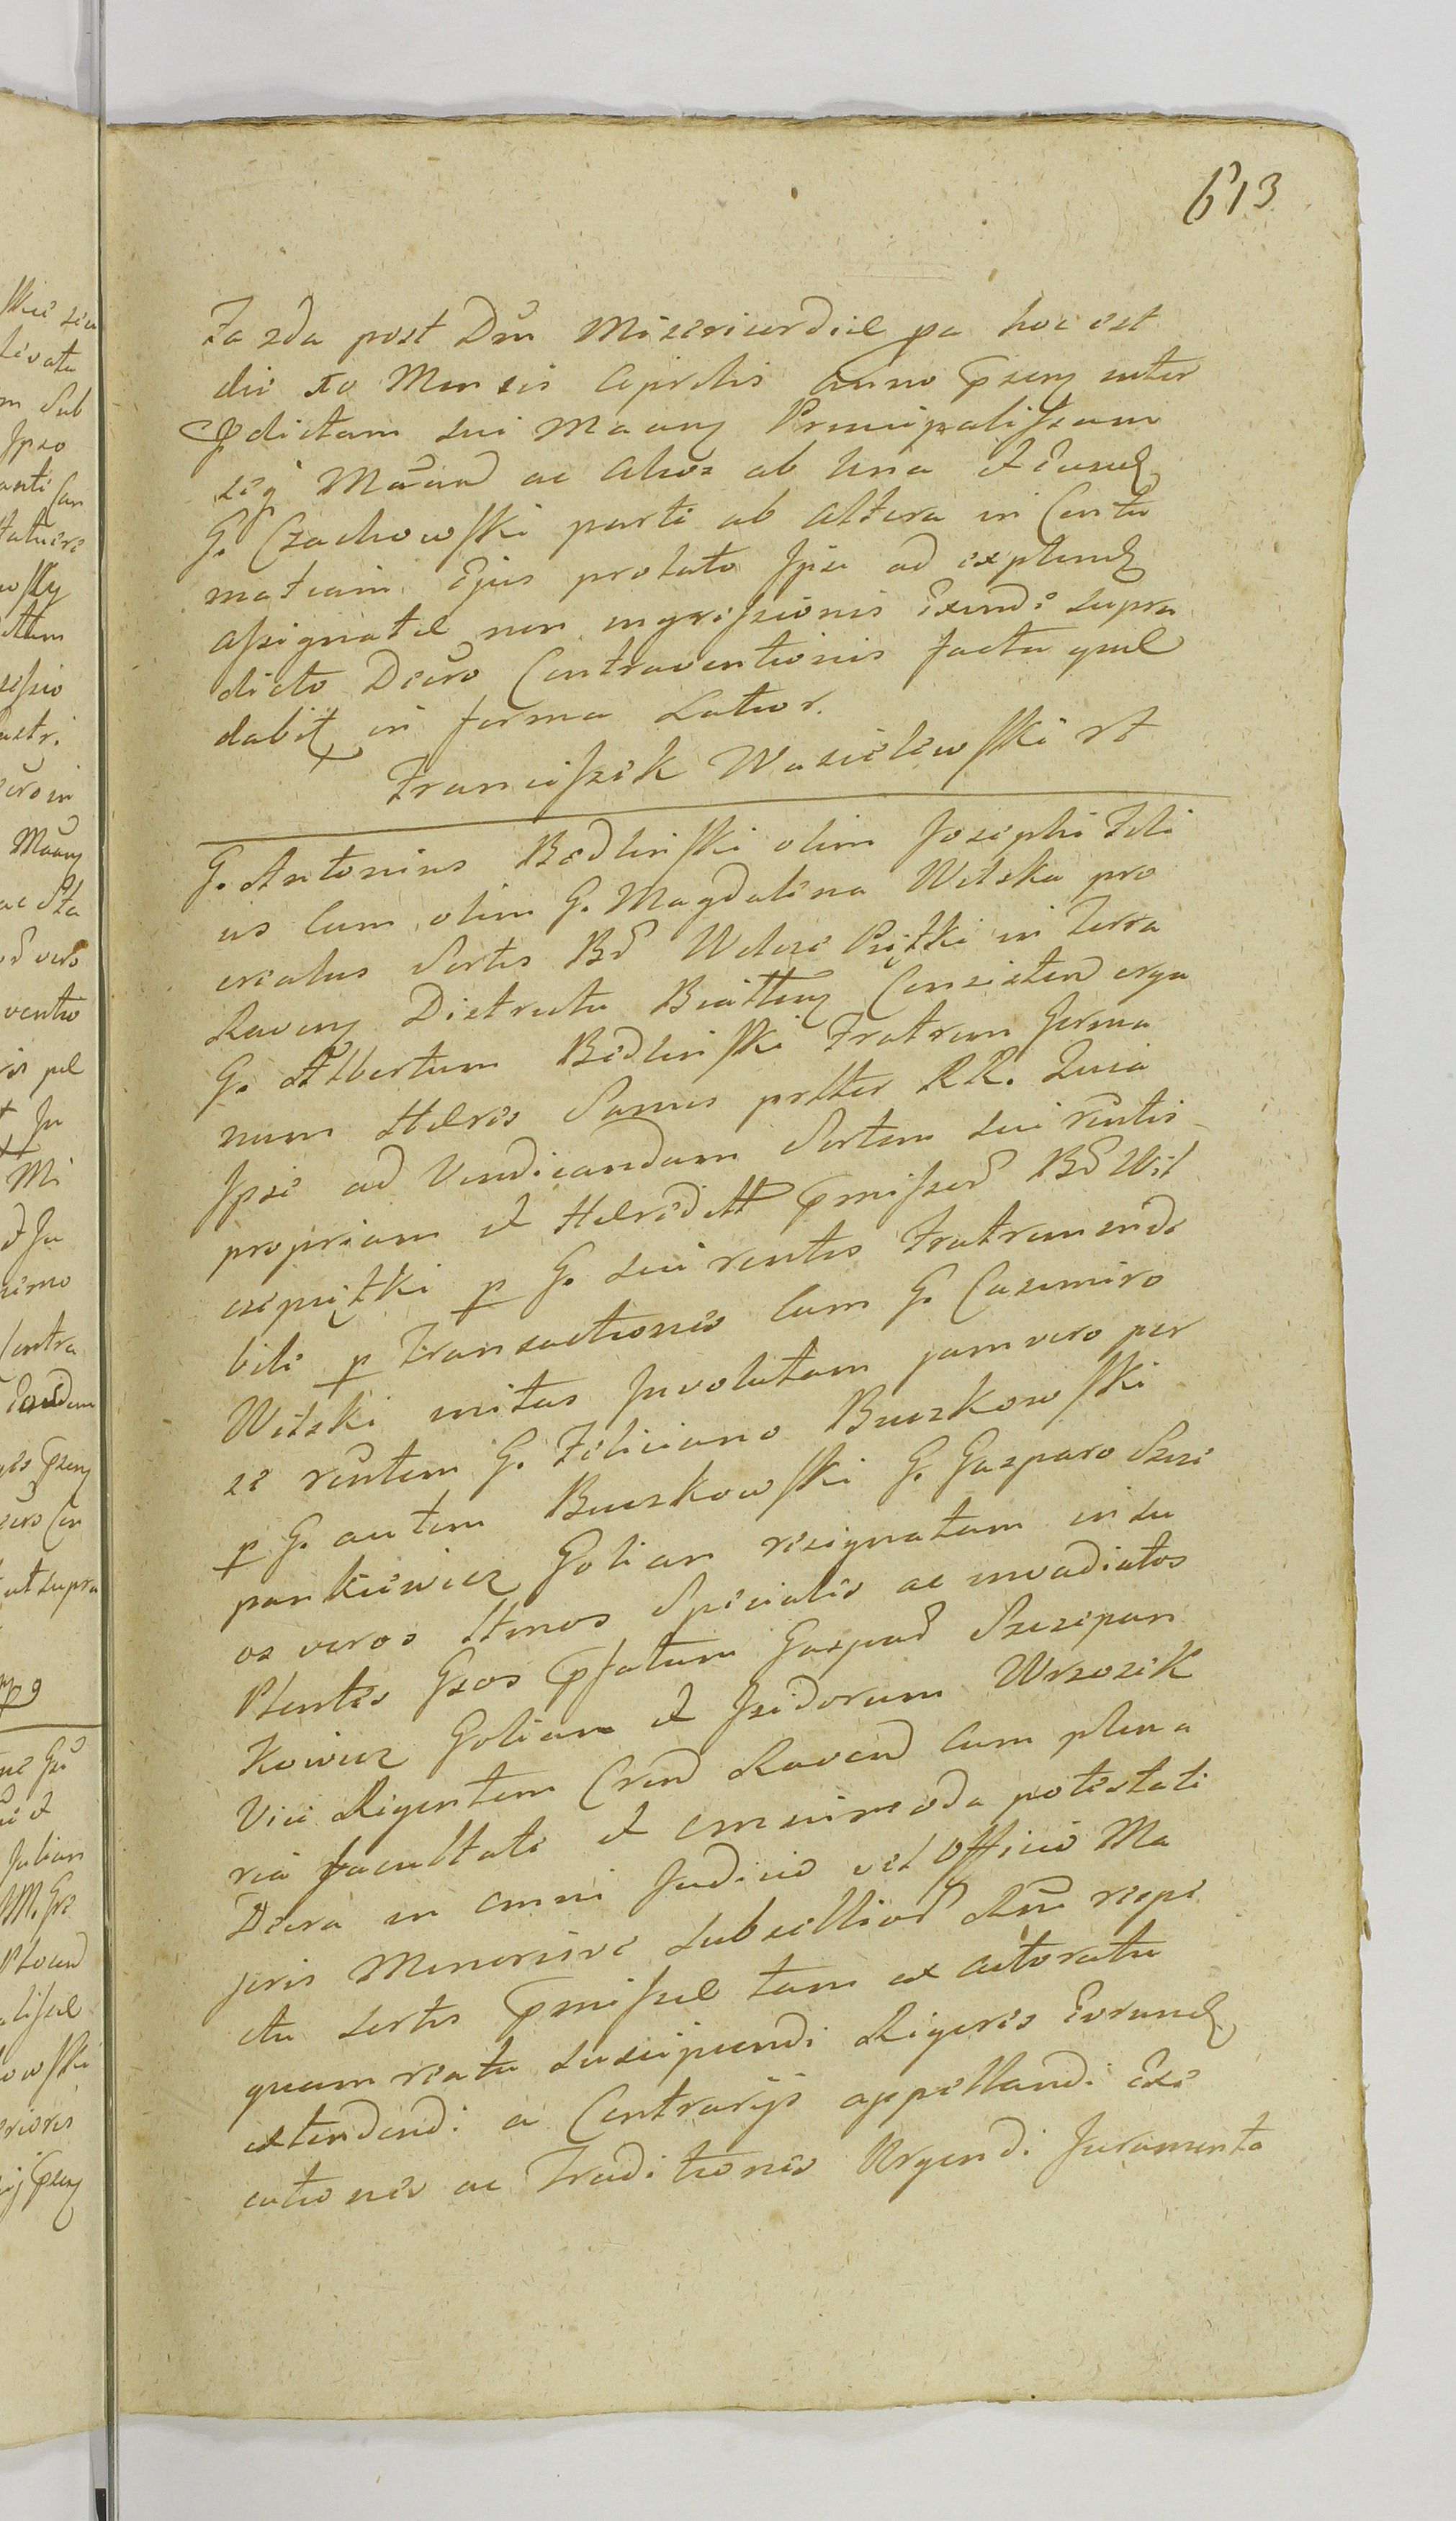 613
Fa 2da post Dm̃ Misericordiæ pa hoc est
die Xo Mensis Aprilis Anno psenꝫ inter
pdictam sui Maanꝫ
ac Alios ab Una et Eund
G. Czachowski parti ab Altera in Contu
matiam Ejus prolato Ipse ad explend
Assignatæ non ingressionis Exindè supra
dicto Decro Contraventionis facta qual
dabit in forma Latior.
Franciszek Wasilewski rt
G. Antonius Bedlinski olim Josephi Fili
us Cum olim G. Magdalena Wilska pro
creatus Sortis Bd Wilcze Piętki in Terra
Ravenꝫ Districtu Consisten erga
G. Albertum Bedlinski Fratrem Germa
num Hæres Samus prltter RR. Quia
Ipse ad Vendicandam Sortem sui rentis
propriam et Hæreditt pmissor Bd Wil
czepiętki p G. sui rentis Fratrem
bili p Transactiones Cum G. Casimiro
Wilski initas Involutam jam vero per
se rentem G. Feliciano Buczkowski
p G. autem Buczkowski G. Gasparo Szcze
pankiewicz Golian resignatam in su
os veros Itmos Speciales ac invadiatos
Plentes Gsos pfatum Gaspar Szczepan
kowicz Golian et Isidorum Wrzosek
Vice Regentem Cren Raven Cum plena
ria facultate et omnimoda potestate
Decra in omni Judicio vel Officio Ma
joris Minorisve Subsellior Rni respe
ctu sortis pmissæ tam ex actoratu
quam reatu suscipiendi Rigores Eorund
extendendi a Contrarijs appellandi Exe
cutiones ac Traditiones Urgendi Juramenta